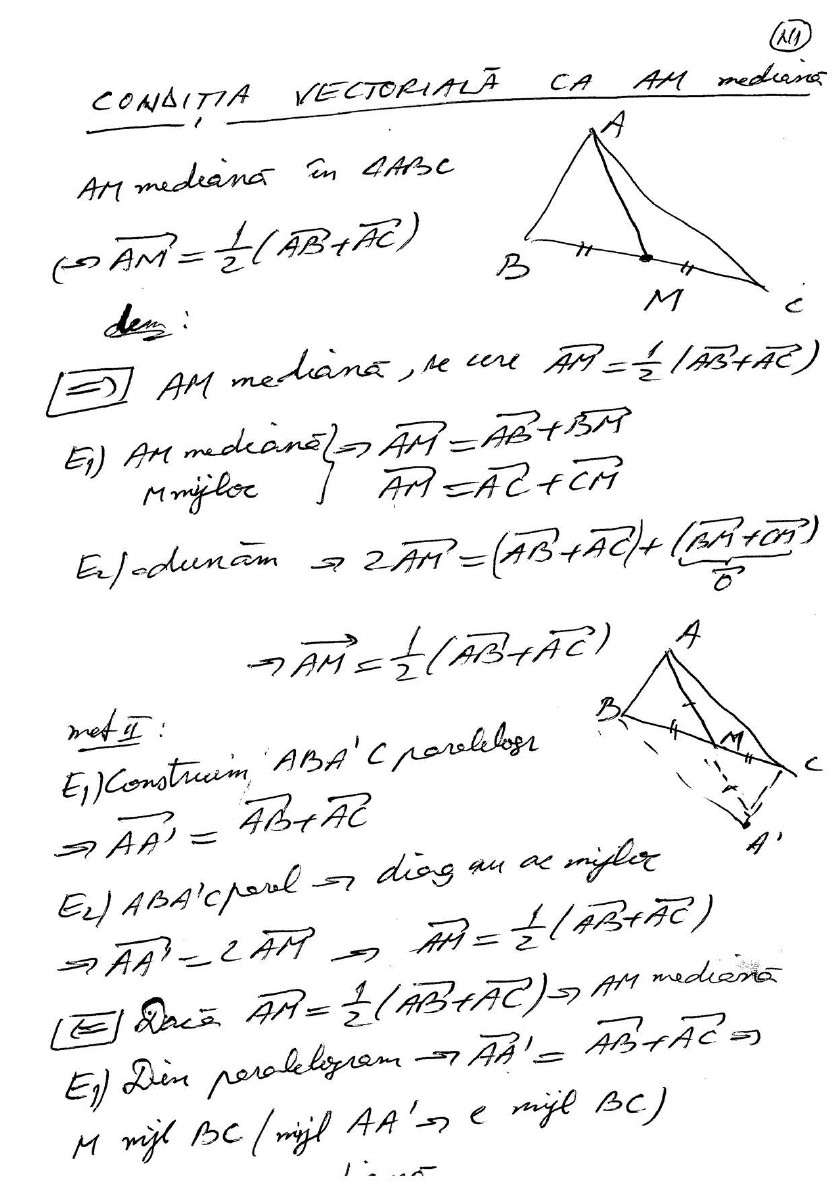 N1
CONDIȚIA VECTORIALĂ CA AM mediană
AM mediană în ΔABC
⇔ \overrightarrow{AM} = \frac{1}{2}(\overrightarrow{AB}+\overrightarrow{AC})
A
B
M
C
dem:
⇒ AM mediană, se cere \overrightarrow{AM} = \frac{1}{2}(\overrightarrow{AB}+\overrightarrow{AC})
E1) AM mediană } ⇒ \overrightarrow{AM} = \overrightarrow{AB}+\overrightarrow{BM}
M mijloc } \overrightarrow{AM} = \overrightarrow{AC}+\overrightarrow{CM}
E2) adunăm ⇒ 2\overrightarrow{AM} = (\overrightarrow{AB}+\overrightarrow{AC})+(\overrightarrow{BM}+\overrightarrow{CM})
\overrightarrow{0}
⇒ \overrightarrow{AM} = \frac{1}{2}(\overrightarrow{AB}+\overrightarrow{AC})
A
B
M
C
A'
met II:
E1) Construim ABA'C paralelogr
⇒ \overrightarrow{AA'} = \overrightarrow{AB}+\overrightarrow{AC}
E2) ABA'C paral ⇒ diag au ac mijloc
⇒ \overrightarrow{AA'} = 2\overrightarrow{AM} ⇒ \overrightarrow{AM} = \frac{1}{2}(\overrightarrow{AB}+\overrightarrow{AC})
⇐ Dacă \overrightarrow{AM} = \frac{1}{2}(\overrightarrow{AB}+\overrightarrow{AC}) ⇒ AM mediană
E1) Din paralelogram ⇒ \overrightarrow{AA'} = \overrightarrow{AB}+\overrightarrow{AC} ⇒
M mijl BC (mijl AA' ⇒ e mijl BC)